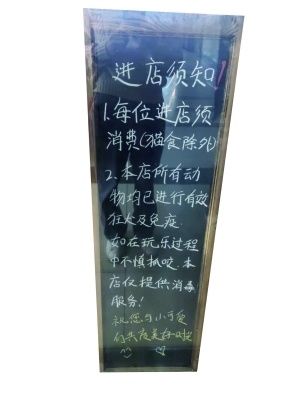 进店须知!
1.每位进店须
消费(猫食除外)
2.本店所有动
物均已进行有效
狂犬及免疫
如在玩乐过程
中不慎抓咬.本
店仅提供消毒
服务!
祝您与小可爱
们共度美好时光